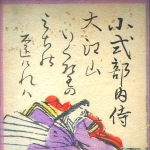 小式部内侍
大江山
いくの乃
みちの
遠けれハ